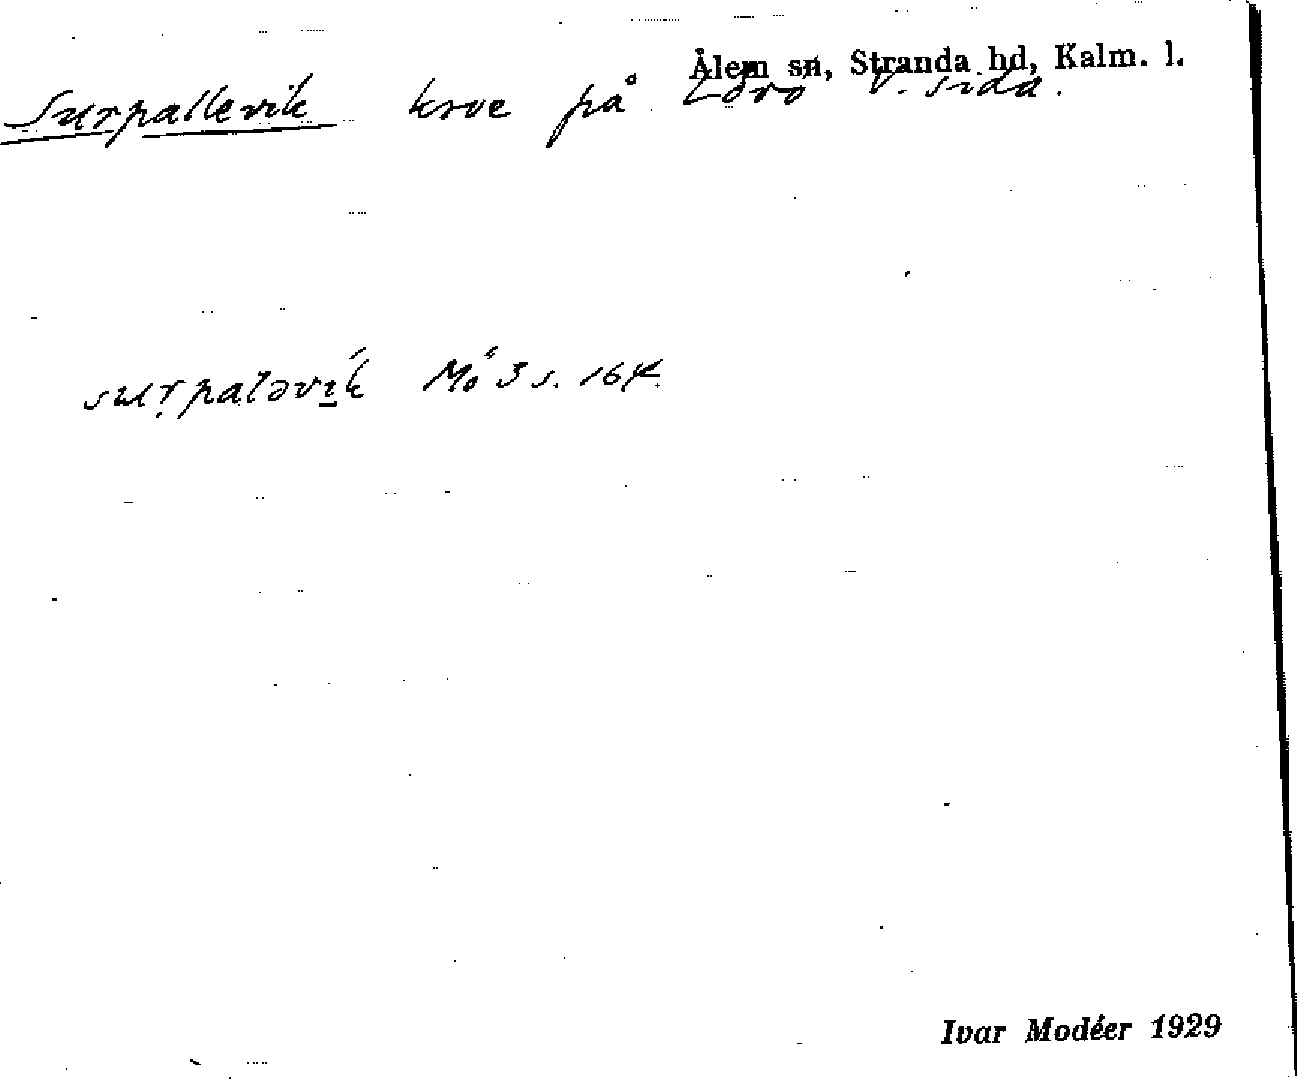 Ålem sn, Stranda hd, Kalm. l.
Surpallevik kroe på Lövö V. sida.
surpaləvik Mó 3 s. 164.
Ivar Modéer 1929